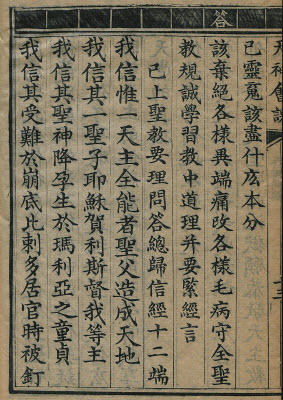 天神會課
己靈魂該盡什庅本分
答
該棄絕各樣異端痛改各樣毛病守全聖
教規誠學習教中道理并要緊經言
已上聖教要理問答總歸信經十二端
我信惟一天主全能者聖父造成天地
我信其一聖子耶穌賀利斯督我等主
我信其聖神降孕生於瑪利亞之童貞
我信其受難於崩底比剌多居官時被釘